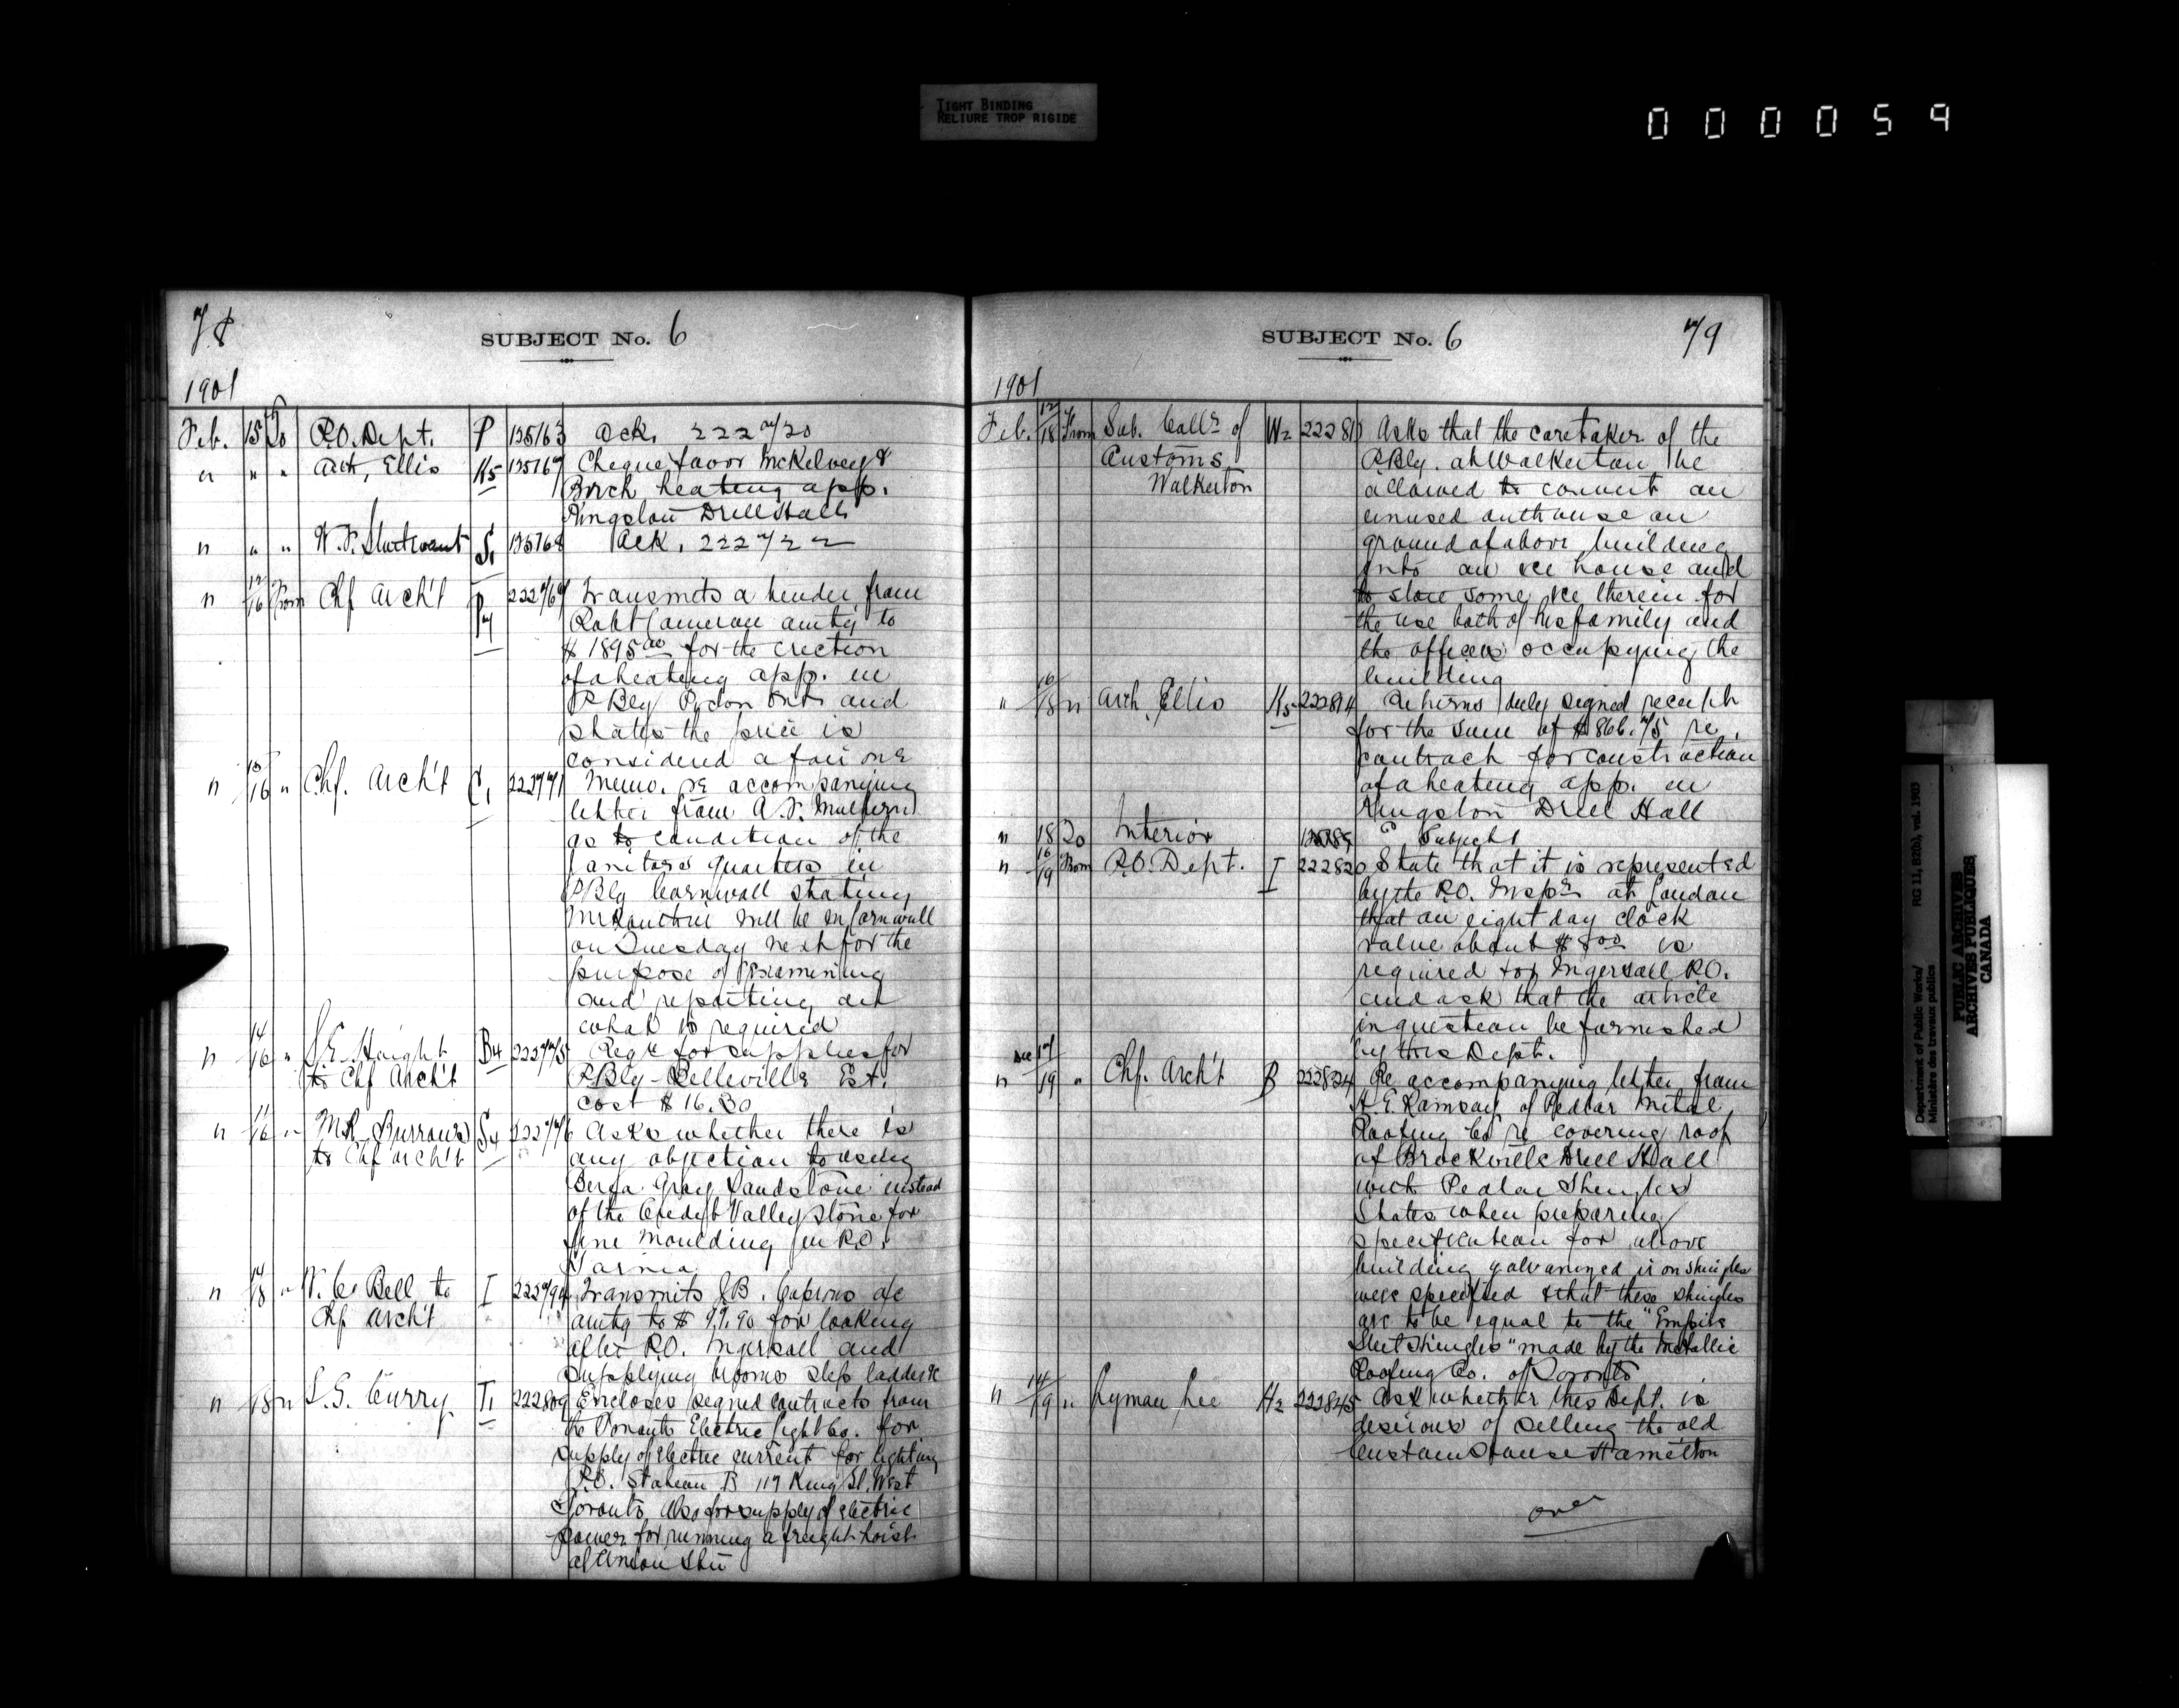 TIGHT BINDING
RELIURE TROP RIGIDE
000059
78
SUBJECT No. 6
1901
Feb. 15 To P.O. Dept. P 135163 Ack. 222720
" " " Arch. Ellis K5 135167 Cheque favor McKelvey &
Birch heating app.
Kingston Drill Hall
" " " W. S. Sturtevant S1 135168 Ack. 222722
" 12/16 From Chf Arch't P4 222769 Transmits a tender from
Robt Cameron amtg to
$1895.00 for the erection
of a heating app. in
P Bly Picton Ont. and
states the price is
considered a fair one
" 15/16 " Chf. Arch't C1 222771 Memo. re accompanying
letter from A. F. Mulhern
as to condition of the
Janitors quarters in
P Bly Cornwall stating
Mr. will be in Cornwall
on Tuesday next for the
purpose of examining
and reporting on
what is required
" 14/16 " Haight B4 222775 Reqn for supplies for
to Chf Arch't P Bly - Belleville Est.
cost $16.30
" 11/16 " Mr. Burrows S4 222776 Asks whether there is
to Chf Arch't any objection to using
Berea Gray Sandstone instead
of the Credit Valley stone for
fine moulding in P.O.
Sarnia
" 14/18 " W. C. Bell to I 222794 Transmits J B. Caprons a/c
Chf Arch't amtg to $99.90 for looking
after P.O. Ingersoll and
supplying brooms step ladder &c
" 18 " S. G. Curry T1 222809 Encloses signed contracts from
the Toronto Electric Light Co. for
supply of electric current for lighting
P.O. Station B 119 King St. West
Toronto also for supply of electric
power for running a freight hoist
at Union Stn
SUBJECT No. 6
79
1901
Feb. 12/18 From Sub. Collr of W2 22281 Asks that the caretaker of the
Customs P.Bly. at Walkerton be
Walkerton allowed to convert an
unused outhouse on
ground of above building
into an ice house and
to store some ice therein for
the use both of his family and
the officers occupying the
building
" 16/18 " Arch. Ellis K5 222814 Returns duly signed receipt
for the sum of $866.75 re
contract for construction
of a heating app. in
Kingston Drill Hall
" 18 To Interior Subject
" 16/19 From P.O. Dept. I 222820 State that it is represented
by the P.O. Inspr at London
that an eight day clock
value about $8.00 is
required for Ingersoll P.O.
and ask that the article
in question be furnished
by this Dept.
Dec 17
" 19 " Chf. Arch't B 222824 Re accompanying letter from
A. E. Ramsay of Pedlar Metal
Roofing Co re covering roof
of Brockville Drill Hall
with Pedlar Shingles
States when preparing
specification for above
building galvanized iron shingles
were specified & that these shingles
are to be equal to the "Empire
Sheet Shingles" made by the Metallic
Roofing Co. of Toronto
" 14/19 " Lyman Lee H2 222845 Ask whether this Dept. is
desirous of selling the old
Customs House Hamilton
over
Department of Public Works/
Ministère des travaux publics
RG 11, B2(b), vol. 1905
PUBLIC ARCHIVES
ARCHIVES PUBLIQUES
CANADA